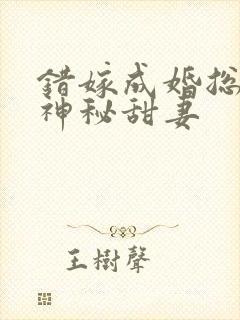 錯嫁成婚総
神秘甜妻
王樹聲